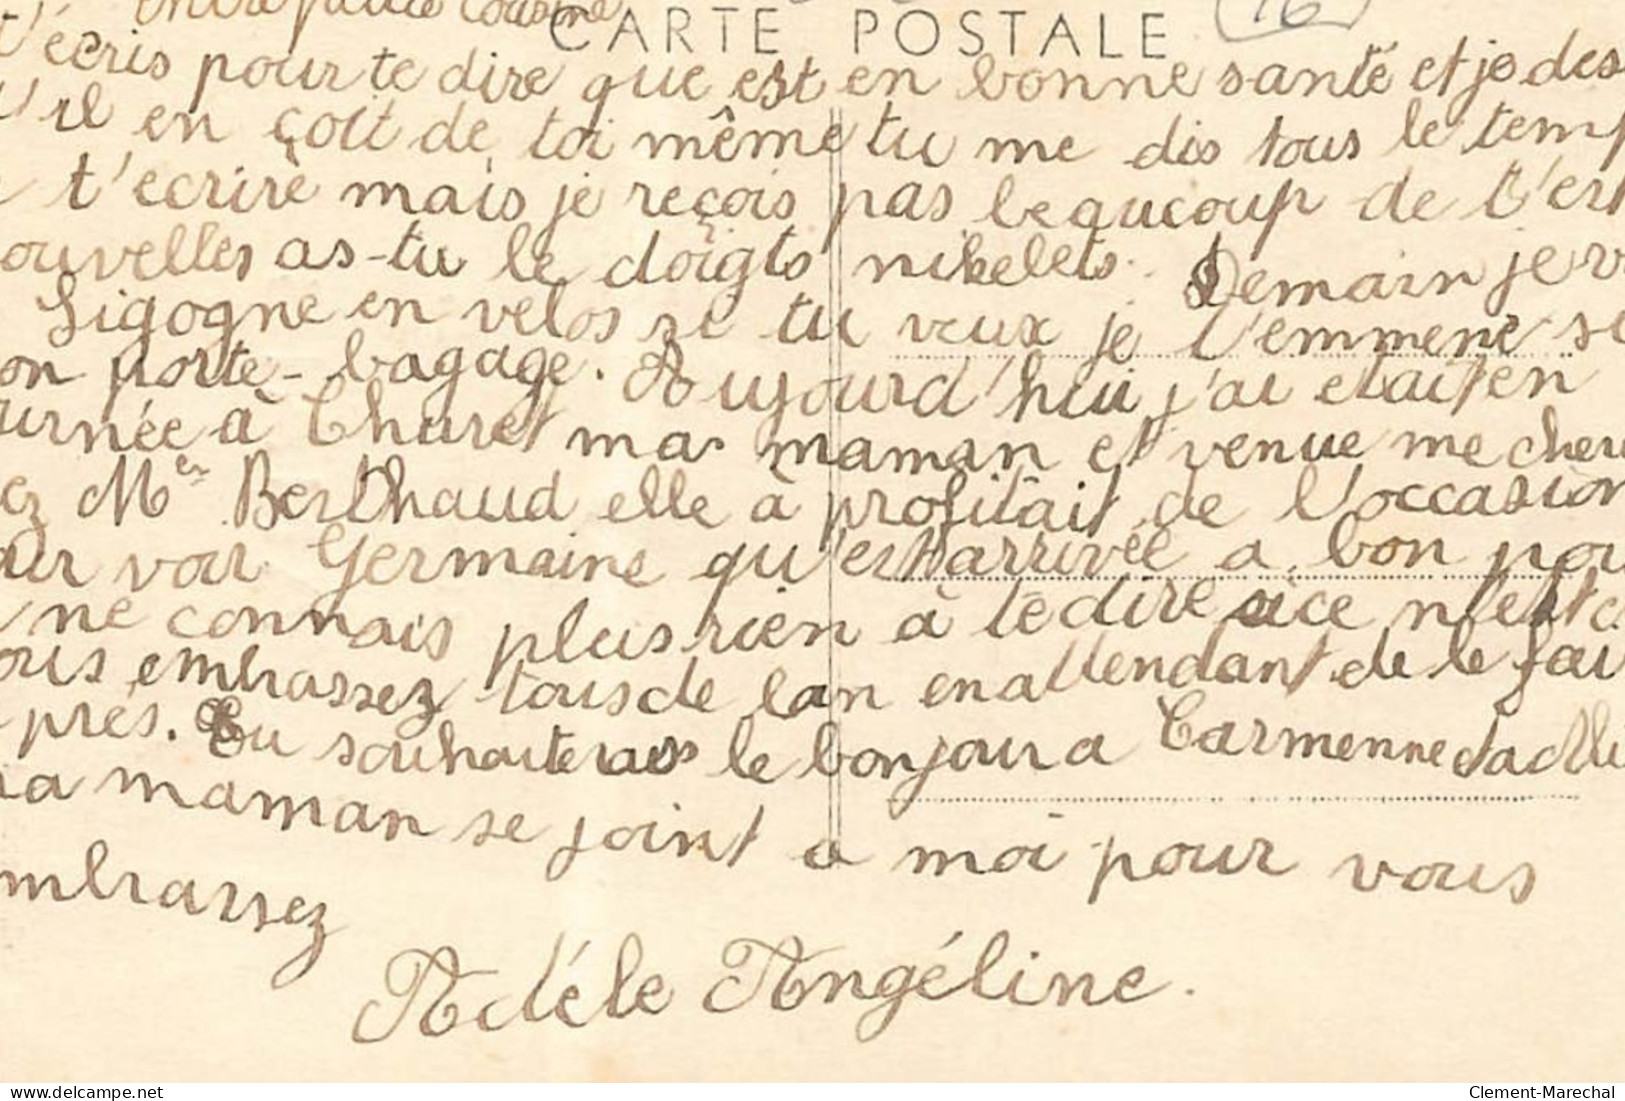 CARTE POSTALE
16
t'ecris pour te dire que est en bonne santé et je des
'il en çoit de toi même tu me dis tous le temp
t'ecrire mais je reçois pas beaucoup de t'es
ouvelles as-tu le doigts nikelets. Demain je v
Sigogne en velos si tu veux je t'emmene su
on porte-bagage. Aujourd'hui j'ai etait en
urnée à Thuret ma maman et venue me cher
ez Mer Berthaud elle à profitait de l'occasion
ur voir Germaine qu'est arrivée a bon por
ne connais plus rien à te dire sice n'est
ous embrassez tous de lan en attendant de le fai
près. Tu souhaiteras le bonjour a Carmenne
a maman se joint a moi pour vous
mbrassez
Adéle Angéline.
delcampe.net
Clement-Marechal